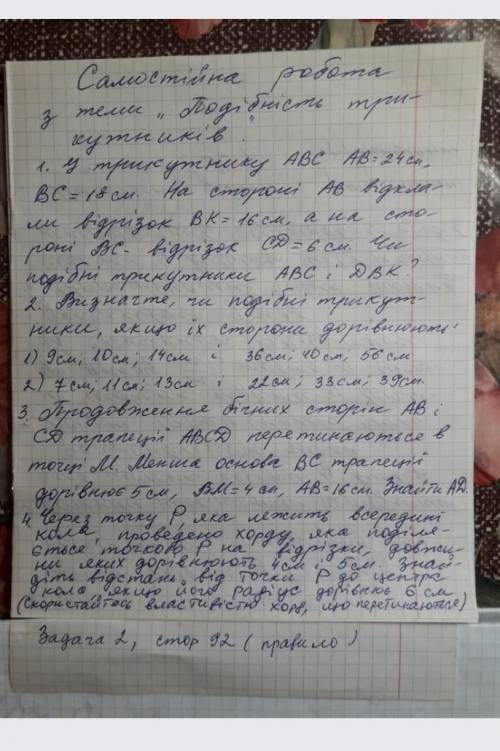 Самостійна робота
з теми „Подібність три-
кутників".
1. У трикутнику ABC AB=24см,
BC=18см. На стороні AB відкла-
ли відрізок BK=16см, а на сто-
роні BC- відрізок CD=6см. Чи
подібні трикутники ABC і DBK?
2. Визначте, чи подібні трикут-
ники, якщо їх сторони дорівнюють:
1) 9см; 10см; 14см і 36см; 40см; 56см
2) 7см; 11см; 13см і 22см; 33см; 39см.
3. Продовження бічних сторін AB і
CD трапеції ABCD перетинаються в
точці M. Менша основа BC трапеції
дорівнює 5см, BM=4см, AB=16см. Знайти AD.
4. Через точку P, яка лежить всередині
кола, проведено хорду, яка поділя-
ється точкою P на відрізки, довжи-
ни яких дорівнюють 4см і 5см. Знай-
діть відстань від точки P до центра
кола, якщо його радіус дорівнює 6см
(скористайтесь властивістю хорд, що перетинаються)
Задача 2, стор 92 (правило)